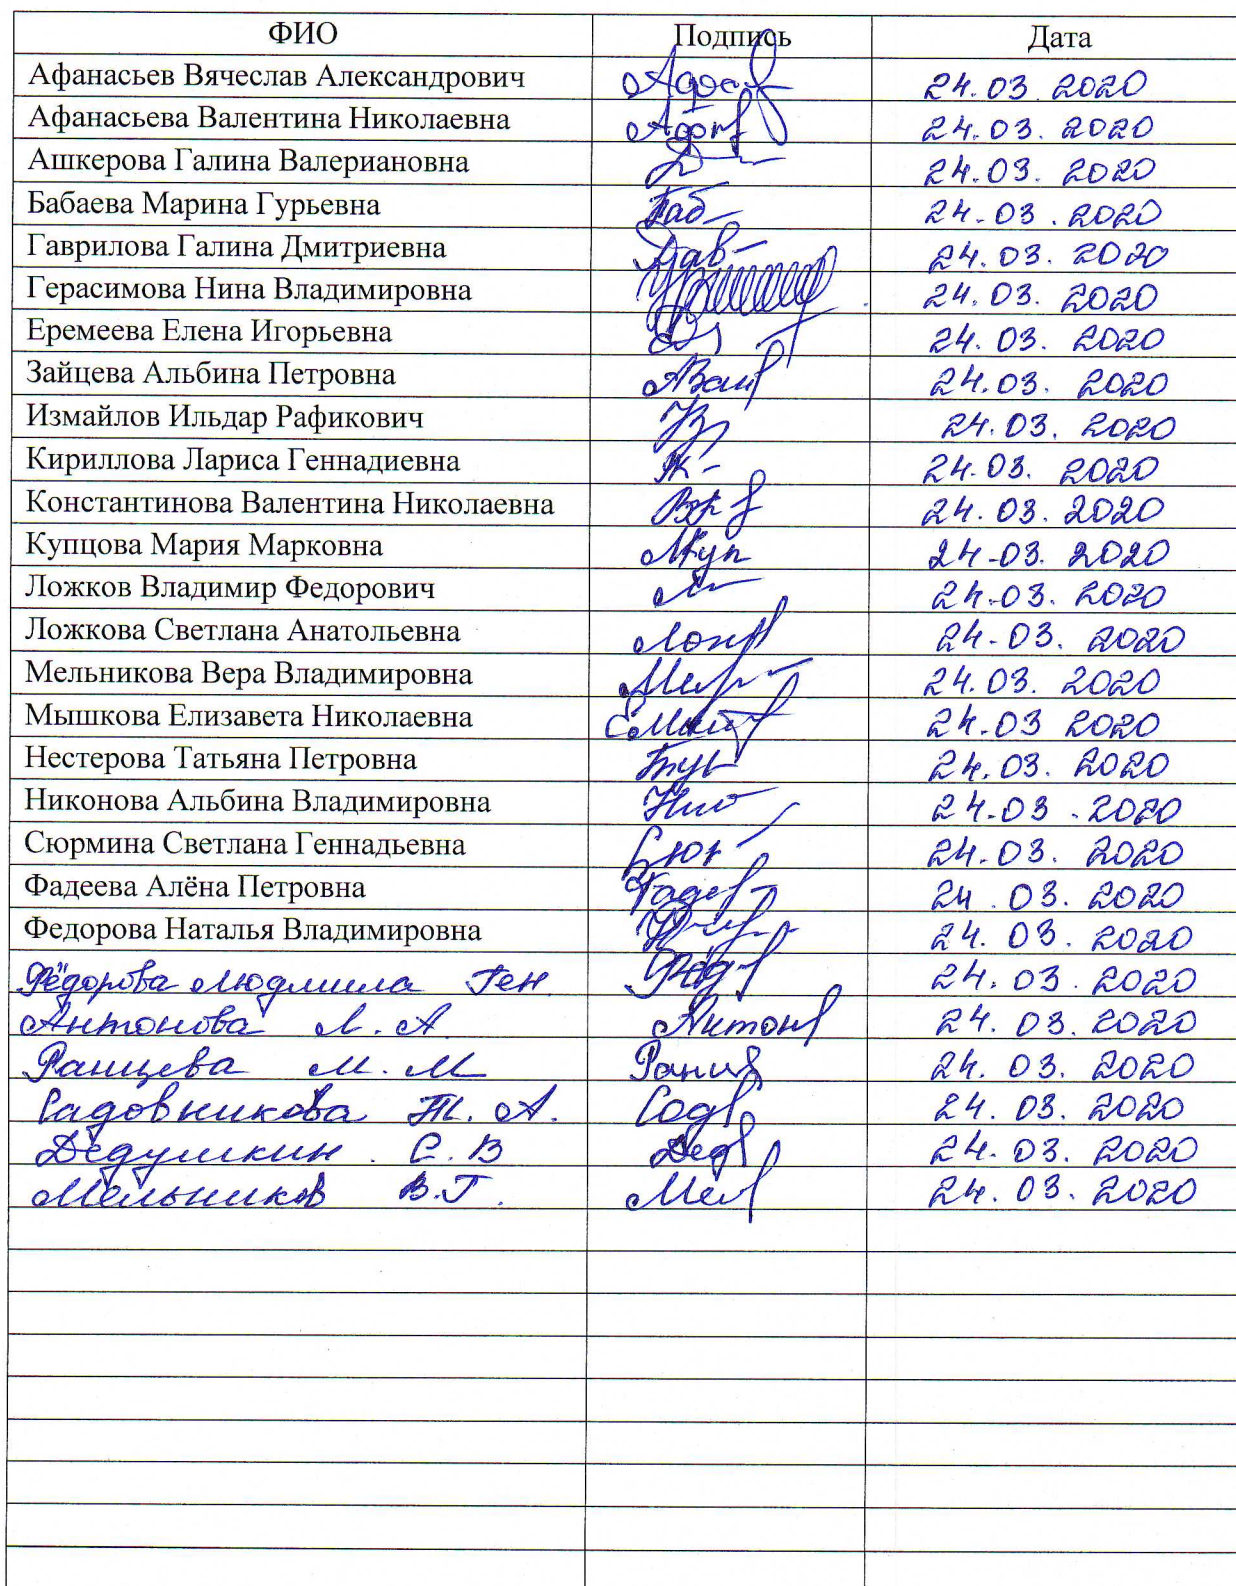 ФИО Подпись Дата
Афанасьев Вячеслав Александрович 24.03.2020
Афанасьева Валентина Николаевна 24.03.2020
Ашкерова Галина Валериановна 24.03.2020
Бабаева Марина Гурьевна 24.03.2020
Гаврилова Галина Дмитриевна 24.03.2020
Герасимова Нина Владимировна 24.03.2020
Еремеева Елена Игорьевна 24.03.2020
Зайцева Альбина Петровна 24.03.2020
Измайлов Ильдар Рафикович 24.03.2020
Кириллова Лариса Геннадиевна 24.03.2020
Константинова Валентина Николаевна 24.03.2020
Купцова Мария Марковна 24.03.2020
Ложков Владимир Федорович 24.03.2020
Ложкова Светлана Анатольевна 24.03.2020
Мельникова Вера Владимировна 24.03.2020
Мышкова Елизавета Николаевна 24.03 2020
Нестерова Татьяна Петровна 24.03.2020
Никонова Альбина Владимировна 24.03.2020
Сюрмина Светлана Геннадьевна 24.03.2020
Фадеева Алёна Петровна 24.03.2020
Федорова Наталья Владимировна 24.03.2020
Фёдорова Людмила Ген 24.03.2020
Антонова Л.А 24.03.2020
Ранцева М.М 24.03.2020
Садовникова Т.А. 24.03.2020
Дедушкин С.В 24.03.2020
Мельников В.Г. 24.03.2020